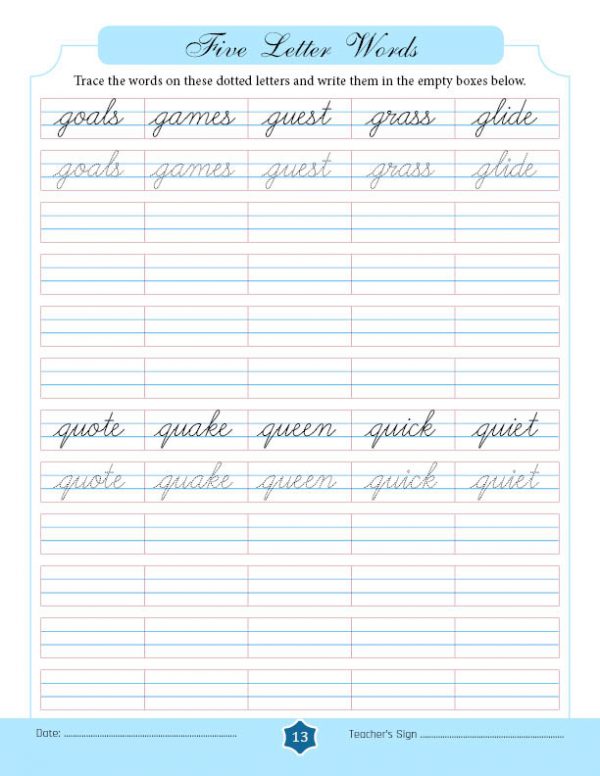 Five Letter Words
Trace the words on these dotted letters and write them in the empty boxes below.
goals games guest grass glide
goals games guest grass glide
quote quake queen quick quiet
quote quake queen quick quiet
Date: ........................................ 13 Teacher's Sign ........................................